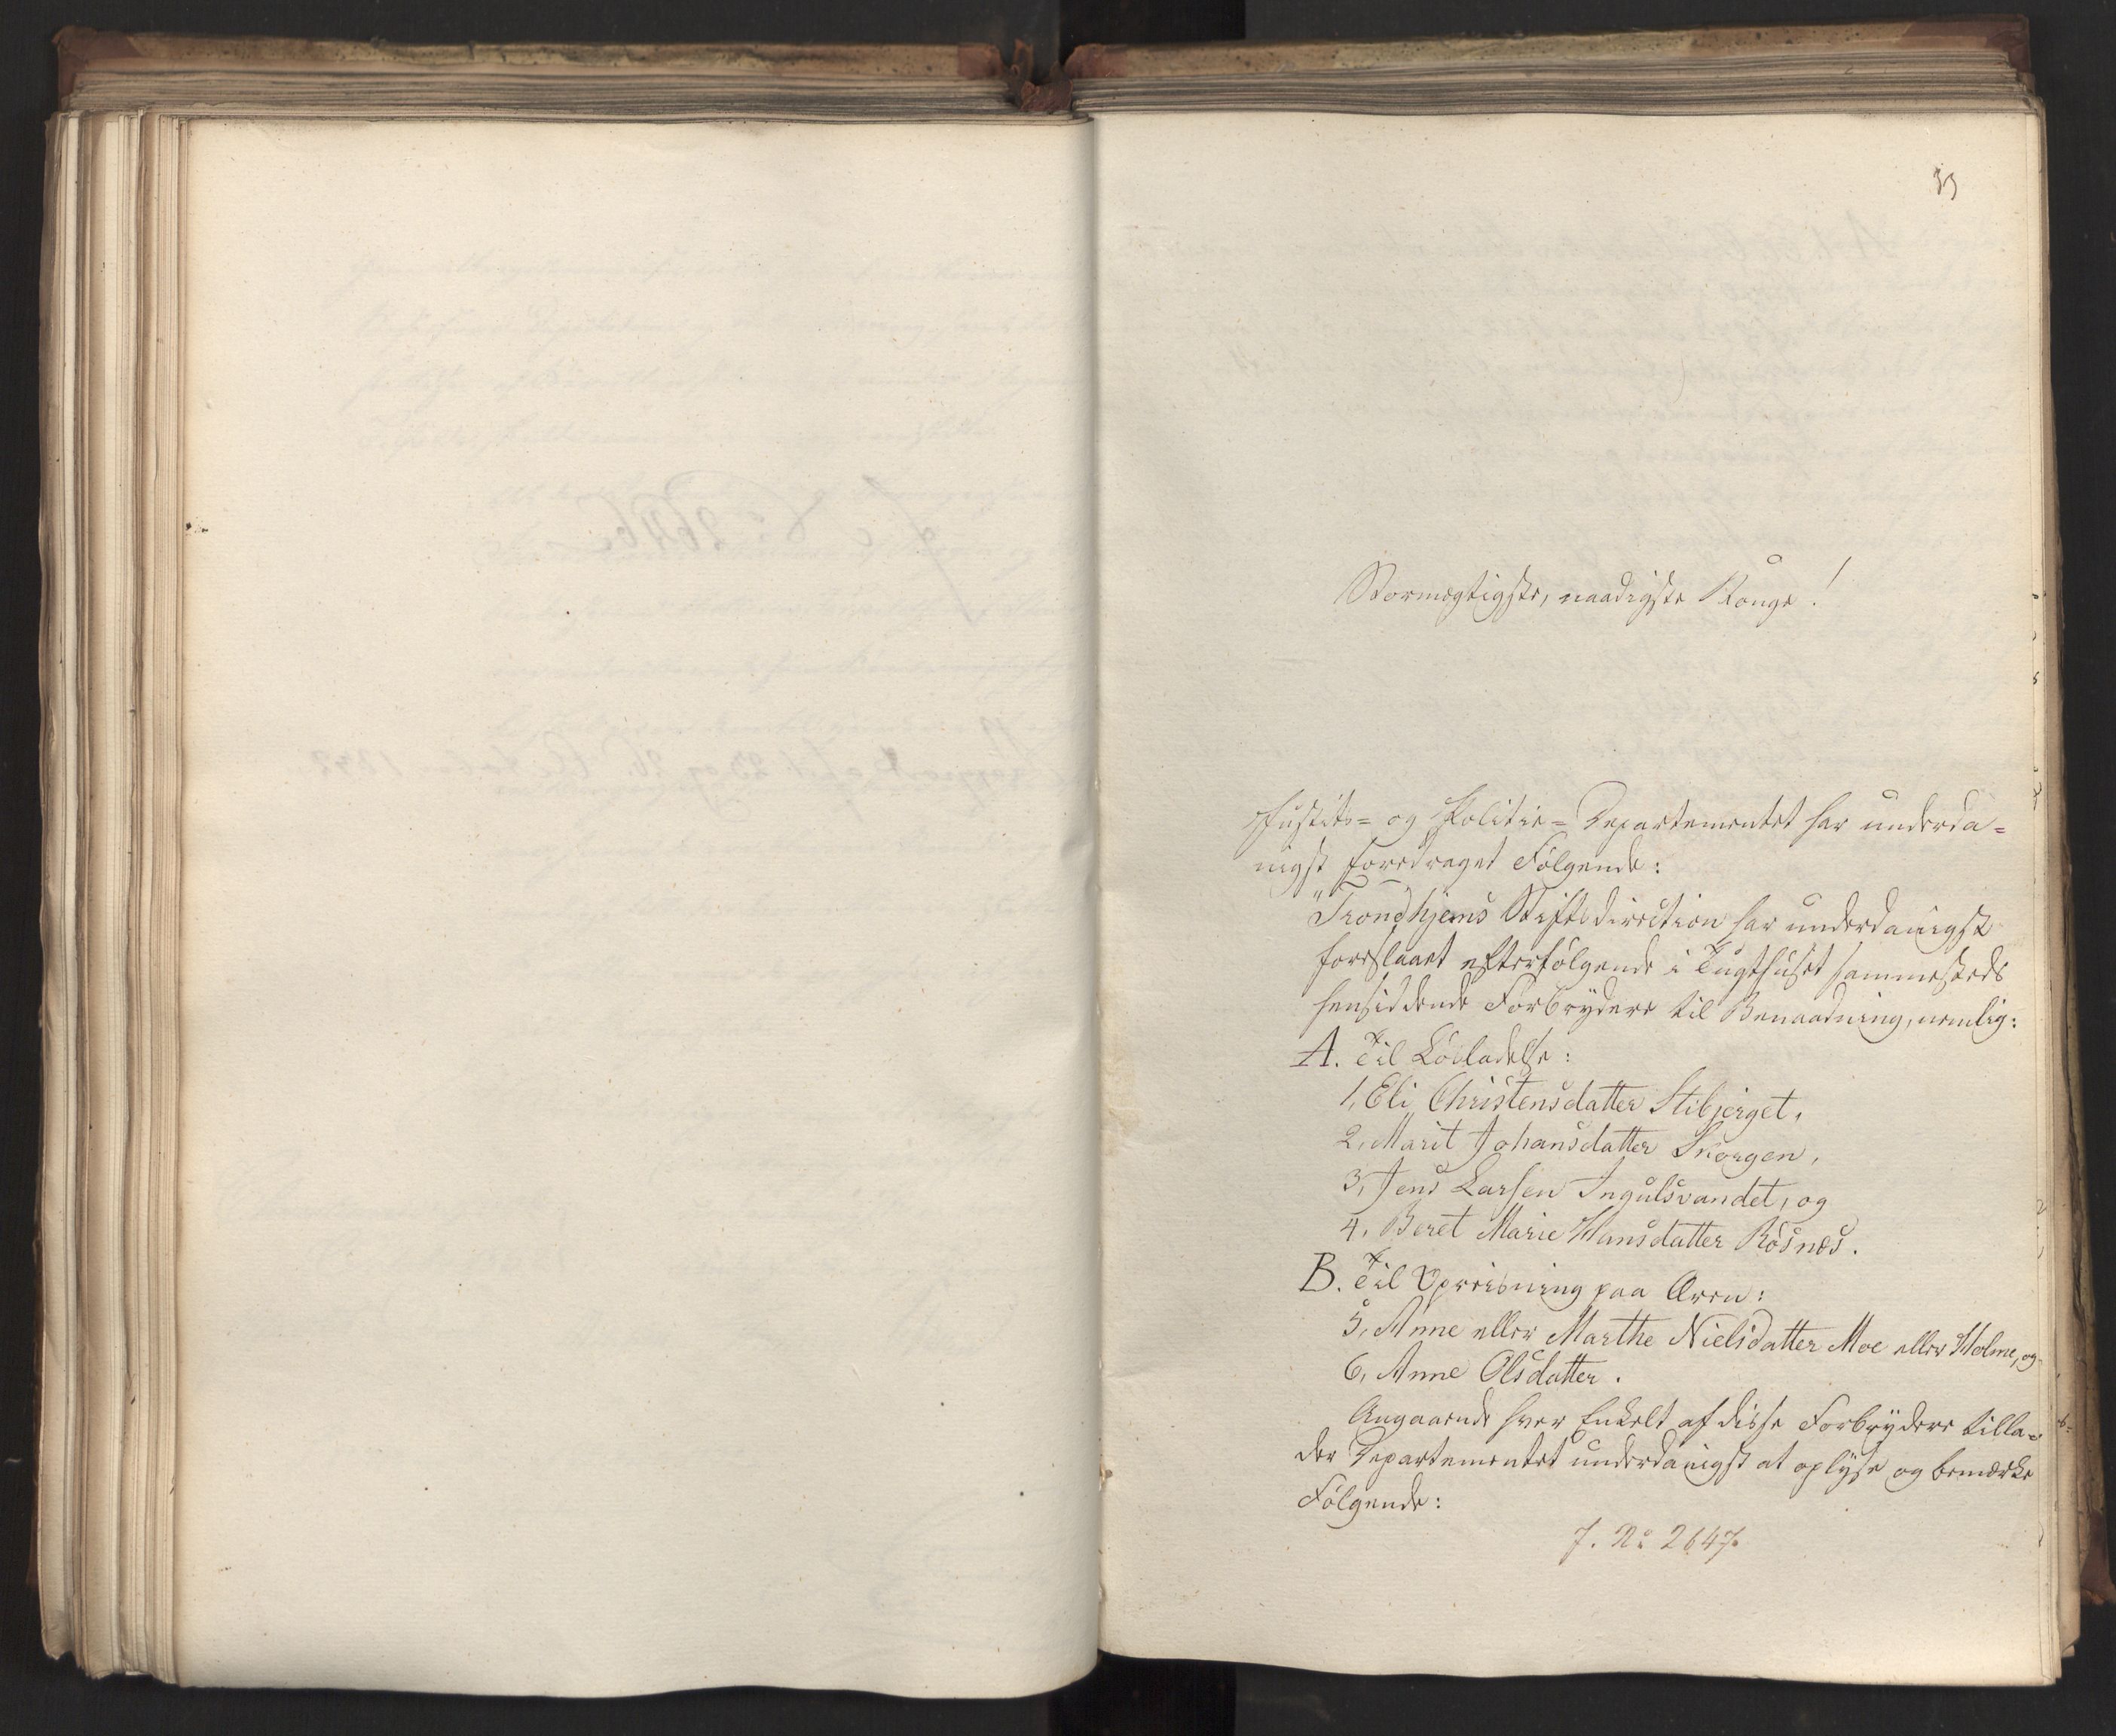 Stormægtigste, naadigste Konge!
Justits- og Politie-Departementet har underda-
nigst foredraget Følgende:
"Trondhjems Stiftsdirection har underdanigst
foreslaaet efterfølgende i Tugthuset sammesteds
hensiddende Forbrydere til Benaadning, nemlig:
A. Til Løsladelse:
1, Eli Christensdatter Stibjerget,
2, Marit Johansdatter Skorgen,
3, Jens Larsen Ingulsvandet, og
4, Beret Marie Hansdatter Rösnæs.
B. Til Opreisning paa Æren:
5, Anne eller Marthe Nielsdatter Moe eller Holme, og
6, Anne Olsdatter.
Angaaende hver Enkelt af disse Forbrydere tilla-
der Departementet underdanigst at oplyse og bemærke
Følgende:
J. No 2647.